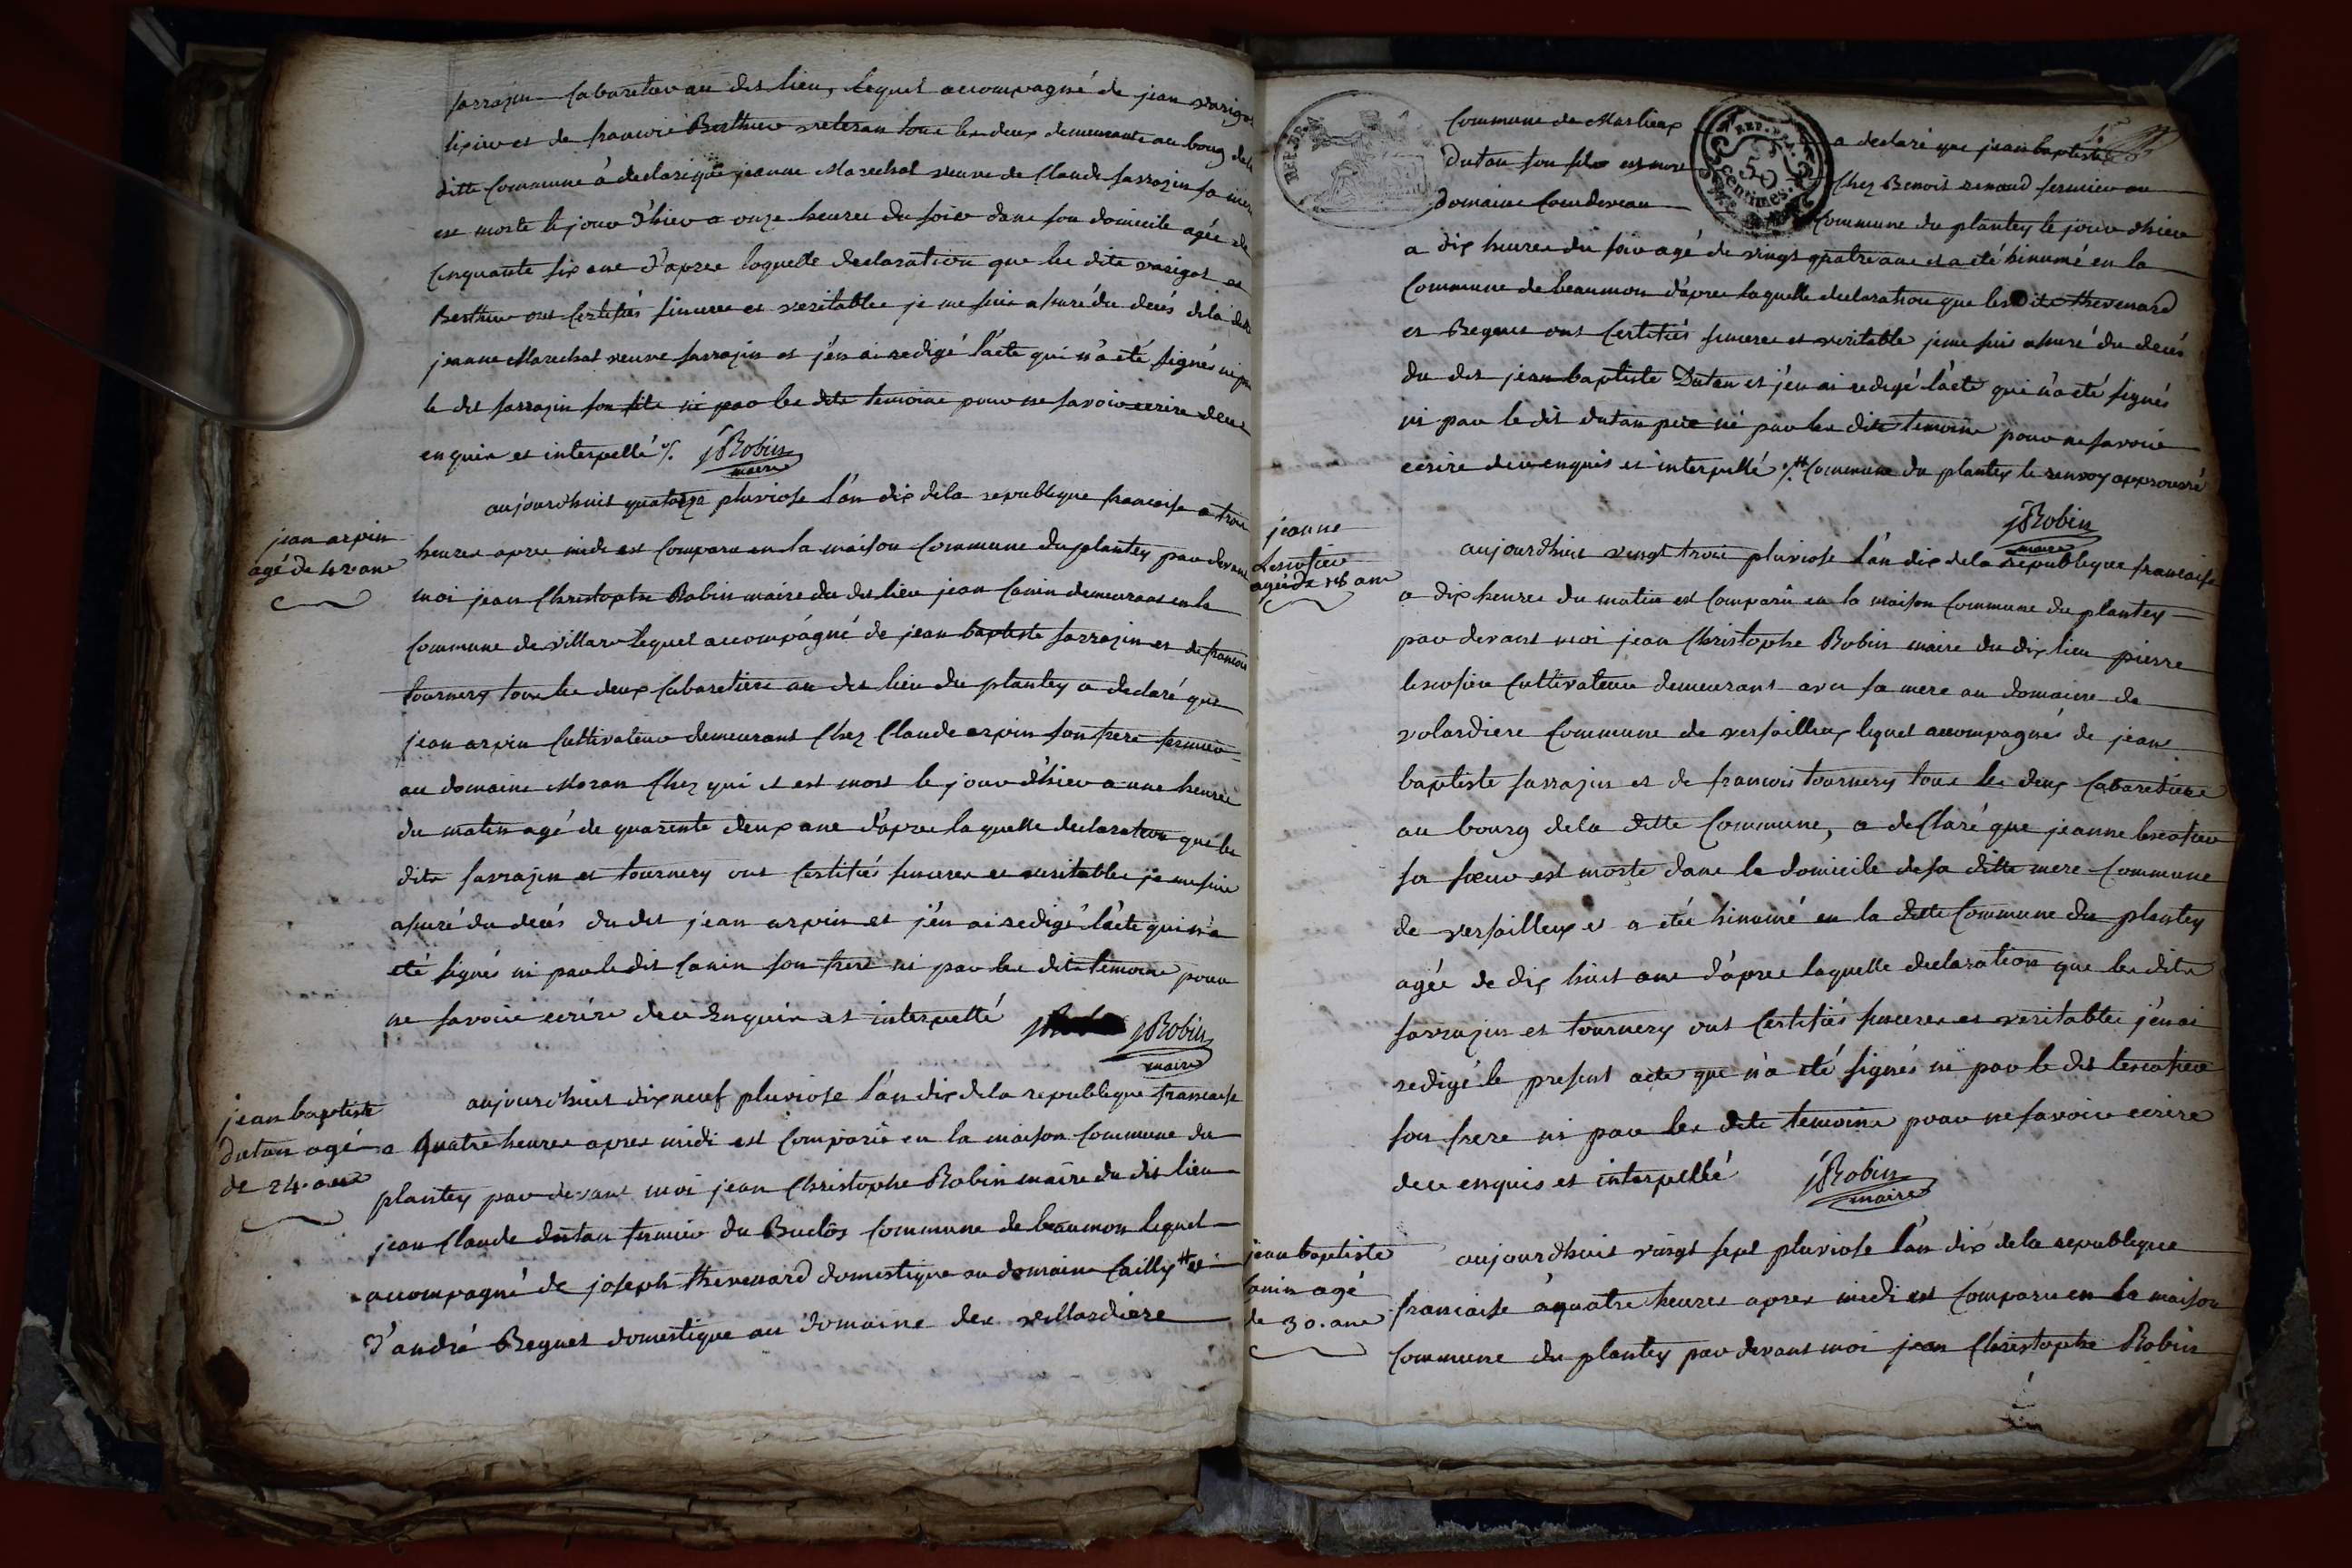 sarrazin Cabaretier au dit lieu, lequel accompagné de jean varigot
et de francois Berthier veteran tous les deux demeurants au bourg de la
ditte Commune à declaré que jeanne Marechal veuve de Claude sarrazin sa mere
est morte le jour d'hier a onze heures du soir dans son domicile agée de
Cinquante six ans d'apres laquelle declaration que les dits varigot et
Berthier ont Certifiés sincere et veritable je me suis assuré du decés de la ditte
jeanne Marechal veuve sarrazin et j'en ai redigé l'acte qui n'a eté signés ni par
le dit sarrazin son fils ni par les dits temoins pour ne savoir ecrire de ce
enquis et interpellé ./. jRobin
maire
jean arpin
agé de 42 ans
aujourd'huit quatorze pluviose l'an dix dela republique francaise a trois
heures apres midi est Comparu en la maison Commune du plantey par devant
moi jean Christophe Robin maire du dit lieu jean Canin demeurant en la
Commune de villars lequel accompagné de jean baptiste sarrazin et de francois
tournery tous les deux Cabaretiers au dit lieu du plantey a declaré que
jean arpin Cultivateur demeurant Chez Claude arpin son frere fermier
au domaine Moran Chez qui il est mort le jour d'hier a une heure
du matin agé de quarente deux ans d'apres laquelle declaration que les
dits sarrazin et tournery ont Certifiés sincere et veritable je me suis
assuré du decés du dit jean arpin et j'en ai redigé l'acte qui n'a
eté signés ni par le dit Canin son frere ni par les dits temoins pour
ne savoir ecrire de ce Enquis et interpellé jRobin
maire
jean baptiste
dutan agé
de 24 ans
aujourd'huit dix neuf pluviose l'an dix dela republique francaise
a quatre heures apres midi est Comparû en la maison Commune du
plantey par devant moi jean Christophe Robin maire du dit lieu
jean Claude dutan fermier du Buclos Commune de beaumon lequel
accompagné de joseph thevenard domestique au domaine Cailly # et
d'andré Beguet domestique au domaine des villardiere
Commune de Marlieux a declaré que jean baptiste
Dutan son fils est mort Chez Benoit renaud fermier au
domaine Commune du plantey le jour d'hier
REP. FRA.
50 Centimes
a dix heures du soir agé de vingt quatre ans et a eté hinumé en la
Commune de beaumon d'apres laquelle declaration que les dits thevenard
et Beguet ont Certifiés sincere et veritable je me suis assuré du decés
du dit jean baptiste Dutan et j'en ai redigé l'acte qui n'a eté signés
ni par le dit dutan pere ni par les dits temoins pour ne savoir
ecrire de ce enquis et interpellé ./. # Commune du plantey le renvoy approuvé
jRobin
maire
jeanne
agée de 18 ans
aujourd'huit vingt trois pluviose l'an dix dela republique francaise
a dix heures du matin est Comparû en la maison Commune du plantey
par devant moi jean Christophe Robin maire du dit lieu pierre
Cultivateur demeurant avec sa mere au domaine de
volardiere Commune de versailleux lequel accompagnés de jean
baptiste sarrazin et de francois tournery tous les deux Cabaretiers
au bourg dela ditte Commune, a deClaré que jeanne
sa soeur est morte dans le domicile de sa ditte mere Commune
de versailleux et a etée hinumé en la ditte Commune du plantey
agée de dix huit ans d'apres laquelle declaration que les dits
sarrazin et tournery ont Certifiés sincere et veritable j'en ai
redigé le present acte qui n'a eté signés ni par le dit
son frere ni par les dits temoins pour ne savoir ecrire
de ce enquis et interpellé jRobin
maire
jean baptiste
Canin agé
de 30. ans
aujourd'huit vingt sept pluviose l'an dix dela republique
francaise a quatre heures apres midi est Comparu en la maison
Commune du plantey par devant moi jean Christophe Robin